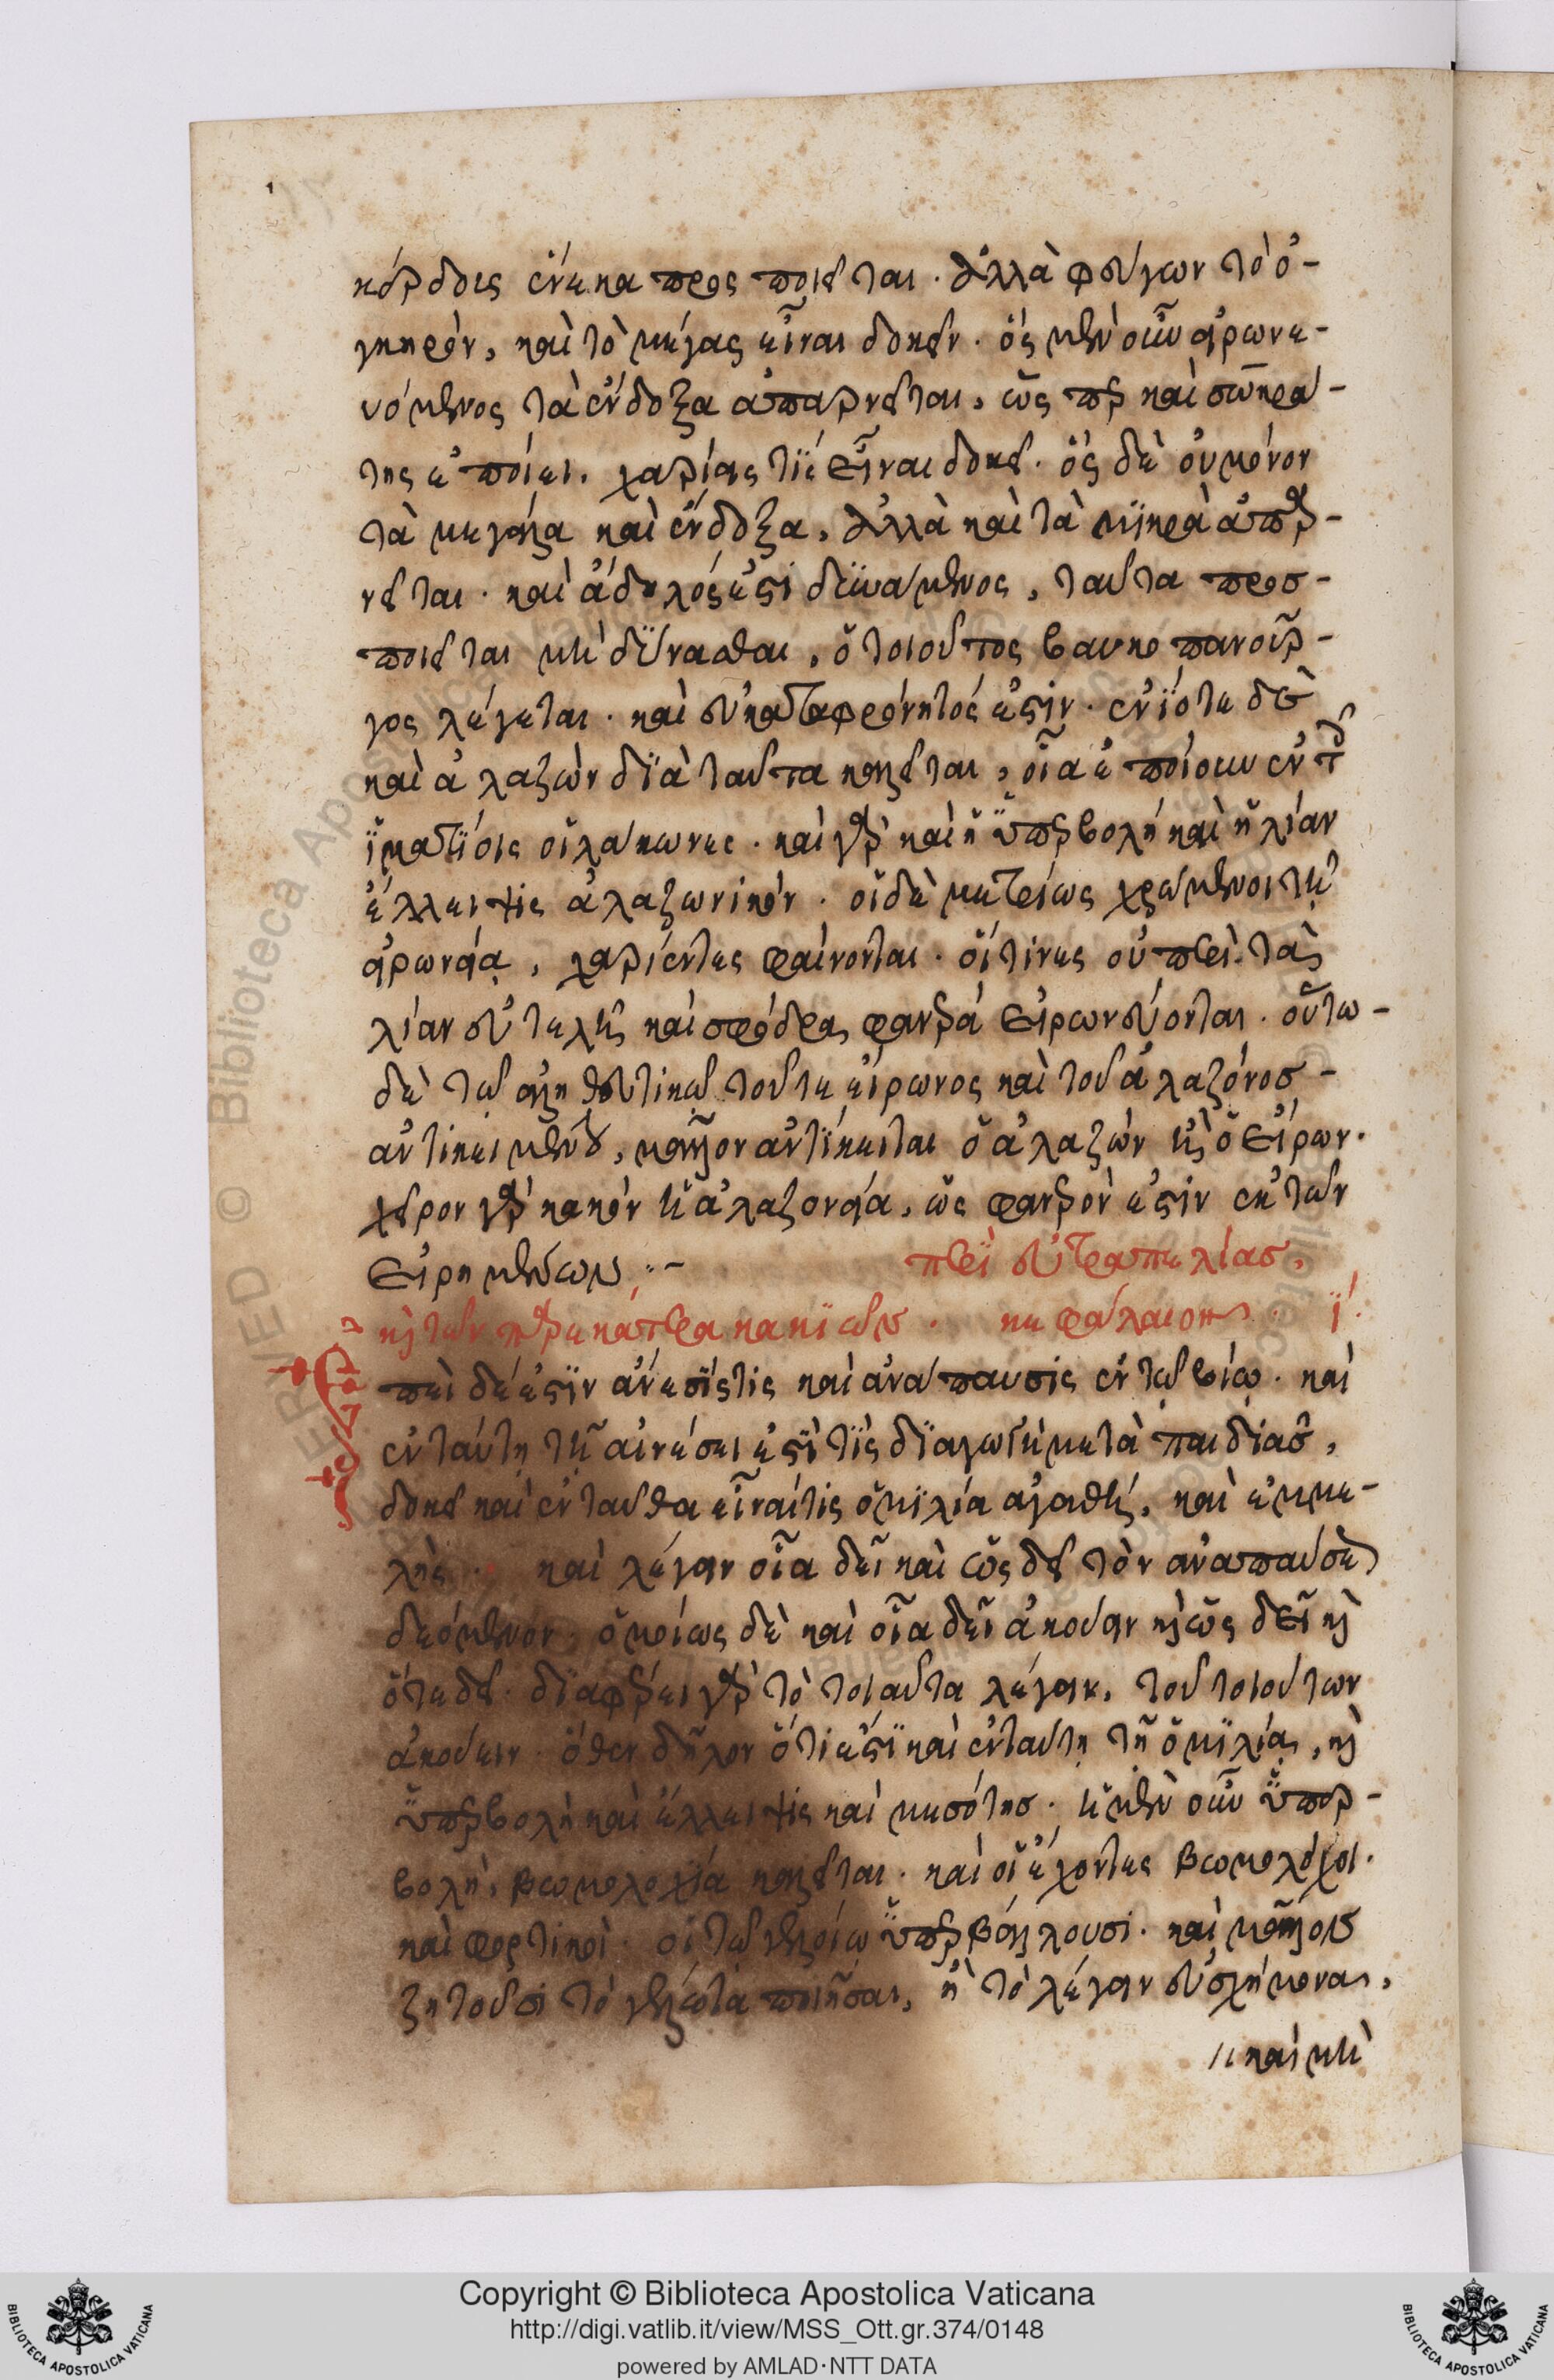 κέρδους ἕνεκα προσποιεῖται. ἀλλὰ φεύγων τὸ ὀ-
γκηρὸν, καὶ τὸ μέγας εἶναι δοκεῖν. ὁς μὲν οὖν εἰρωνε-
υόμενος τὰ ἔνδοξα ἀπαρνεῖται, ὥς περ καὶ σωκρά-
της ἐποίει. χαρίεις τίς εἶναι δοκεῖ. ὁς δὲ οὐ μόνον
τὰ μεγάλα καὶ ἔνδοξα, ἀλλὰ καὶ τὰ μικρὰ ἀπαρ-
νεῖται. καὶ ἄδηλός ἐστι δυνάμενος, ταῦτα προσ-
ποιεῖται μὴ δύνασθαι, ὁ τοιοῦτος βαυκοπανοῦρ-
γος λέγεται. καὶ εὐκαταφρόνητός ἐστιν. ἐνίοτε δὲ
καὶ ἀλαζὼν διὰ ταῦτα καλεῖται, οἷα ἐποίουν ἐν τοῖς
ἱματίοις οἱ λάκωνες. καὶ γὰρ καὶ ἡ ὑπερβολὴ καὶ ἡ λίαν
ἔλλειψις ἀλαζωνικόν. οἱ δὲ μετρίως χρώμενοι τῇ
εἰρωνείᾳ, χαρίεντες φαίνονται. οἵτινες οὐ περὶ τὰ
λίαν εὐτελῆ καὶ σφόδρα φανερά εἰρωνεύονται. οὕτω-
δὲ τῷ ἀληθευτικῷ τοῦ τε εἴρωνος καὶ τοῦ ἀλαζόνοσ-
ἀντικειμένου, μᾶλλον ἀντίκειται ὁ ἀλαζών ἢ ὁ εἴρων.
χεῖρον γὰρ κακὸν ἡ ἀλαζονεία, ὡς φανερόν ἐστιν ἐκ τῶν
εἰρημένων :- περὶ εὐτραπελίασ,
καὶ τῶν παρ' ἑκάτερα κακιῶν. κεφάλαιον ι.
Ἐπεὶ δέ ἐστιν ἄνεσίς τις καὶ ἀνάπαυσις ἐν τῷ βίῳ. καὶ
ἐν ταύτῃ τῇ ἀινέσει ἐστὶ τὶς διαγωγὴ μετὰ παιδιᾶσ,
δοκεῖ καὶ ἐνταῦθα εἶναί τις ὁμιλία ἀγαθή, καὶ ἐμμε-
λὴς. καὶ λέγειν οἷα δεῖ καὶ ὥς δεῖ τὸν ἀναπαύσεως
δεόμενον. ὁμοίως δὲ καὶ οἷα δεῖ ἀκούειν καὶ ὡς δεῖ καὶ
ὅτε δεῖ. διαφέρει γὰρ τὸ τοιαῦτα λέγειν, τοῦ τοιούτων
ἀκούειν. ὅθεν δῆλον ὅτι ἐστὶ καὶ ἐν ταύτῃ τῇ ὁμιλίᾳ, καὶ
ὑπερβολὴ καὶ ἔλλειψις καὶ μεσότησ. ἡ μὲν οὖν ὑπερ-
βολὴ, βωμολοχία καλεῖται. καὶ οἱ ἔχοντες βωμολόχοι.
καὶ φορτικοὶ. οἱ τῷ γελοίῳ ὑπερβάλλουσι. καὶ μᾶλλον
ζητοῦσι τὸ γέλωτα ποιῆσαι, ἢ τὸ λέγειν εὐσχήμονα,
καὶ μὴ
Copyright © Biblioteca Apostolica Vaticana
http://digi.vatlib.it/view/MSS_Ott.gr.374/0148
powered by AMLAD·NTT DATA
BIBLIOTECA APOSTOLICA VATICANA
BIBLIOTECA APOSTOLICA VATICANA